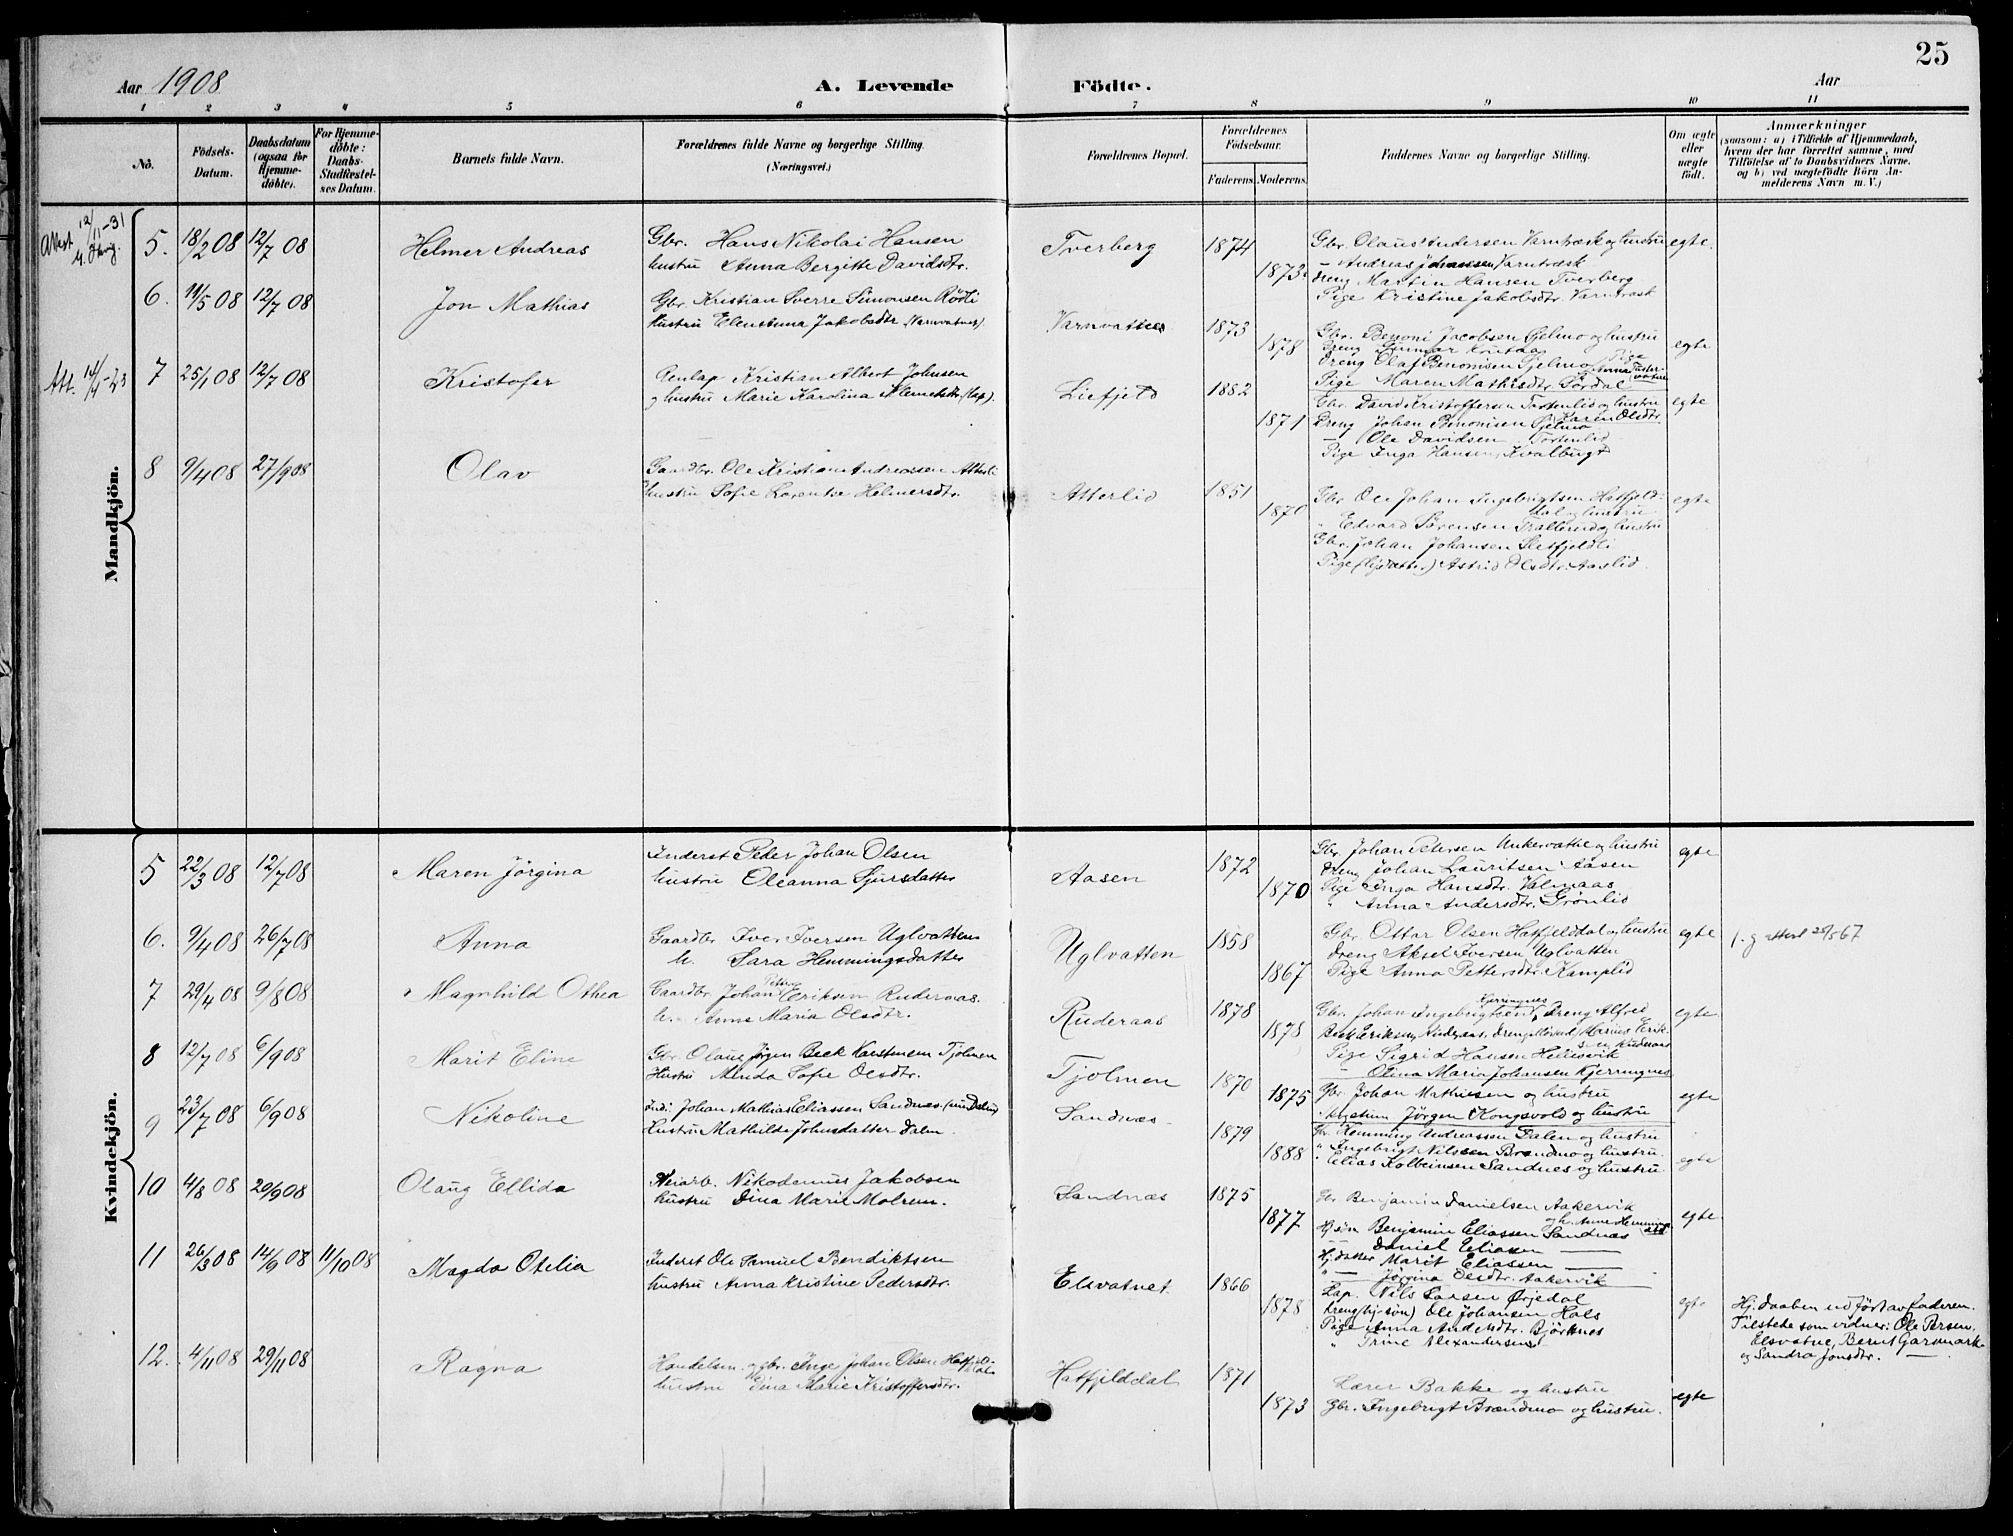 25
Aar 1908
A. Levende Födte.
Aar
1 2 3 4 5 6 7 8 9 10 11
No.
Födsels-Datum.
Daabsdatum (ogsaa for Hjemme-döbte).
For Hjemme-döbte: Daabs-Stadfæstel-ses Datum.
Barnets fulde Navn.
Forældrenes fulde Navne og borgerlige Stilling. (Næringsvei.)
Forældrenes Bopæl.
Forældrenes Födselsaar.
Faderens. Moderens.
Faddernes Navne og borgerlige Stilling.
Om ægte eller uægte födt.
Anmærkninger
(saasom: a) i Tilfælde af Hjemmedaab,
hvem der har forrettet samme, med
Tilföielse af to Daabsvidners Navne.
og b) ved uægtefödte Börn An-
melderens Navn m. V.)
Mandkjön.
Attest 12/11-31
5. 18/2 08 12/7 08 Helmer Andreas
Gbr. Hans Nikolai Hansen
hustru Anna Bergitte Davidsdtr.
Tverberg 1874 1873
Gbr. Olaus Andersen Varntræsk og hustru egte.
— Andreas Johansen Varntræsk
Dreng Martin Hansen Tverberg
Pige Kristine Jakobsdtr. Varntræsk
6. 11/5 08 12/7 08 Jon Mathias
Gbr. Kristian Sverre Simonsen Rödli
Hustru Elen Anna Jakobsdtr. (Varnvatnes)
Varnvattnes 1873 1878
Gbr. Benoni Jacobsen Gjelmo og hustru egte
Dreng Olaf Benonisen Sjelmo
Pige Maren Mathisdtr. Sördal
Att. 14/4-23
7 25/1 08 12/7 08 Kristofer
Renlap Kristian Albert Johnsen
og hustru Marie Karolina Klemetsdtr. (lap).
Liefjeld 1882 1871
Gbr. David Kristoffersen Tortenlid og hustru egte
Dreng Johan Benonisen Sjelmo Karen Olsdtr.
— Ole Davidsen Tortenlid
Pige Inga Hansen, Kvalbugt
8 9/4 08 27/9 08 Olav
Gaardbr. Ole Kristian Andreassen Atterli
hustru Sofie Lorentse Helmersdtr.
Atterlid 1851 1870
Gbr. Ole Johan Ingebrigtsen Hatfjeld- egte
dal og hustru.
" Edvard Sörensen Trallerud og hustru
Gbr. Johan Johansen Sletfjeldli
Pige Astrid Olsdtr. Aaslid.
Kvindekjön.
5 22/3 08 12/7 08 Maren Jörgina
Inderst Peder Johan Olsen
hustru Oleanna Sjursdatter
Aasen 1872 1870
Gbr. Johan Petersen Unkervatne og hustru egte
Dreng Johan Lauritsen Aasen
Pige Inga Hansdtr. Valmaas
" Anna Andersdtr. Grönlid
6. 9/4 08 26/7 08 Anna
Gaardbr. Iver Iversen Uglvatten
h. Sara Hemmingsdatter
Uglvatten 1858 1867
Gbr. Ottar Olsen Hatfjelddal og hustru egte
Dreng Aksel Iversen Uglvatten
Pige Anna Pettersdtr. Kamplid
7 29/4 08 9/8 08 Magnhild Othea
Gaardbr. Johan Peter Eriksen Ruderaas.
h. Anne Maria Olsdtr.
Ruderaas 1878 1878
Gbr. Johan Ingebrigtsen Kjerringnes, Dreng Alfred egte
Pige Sigrid Hansen Hellesvik
— Olina Maria Johansen Kjerringnes
8 12/7 08 6/9 08 Marit Eline
Gbr. Olaus Jörgen Beck Kaestmem Tjolmen
Hustru Minda Sofie Olsdtr.
Tjolmen 1870 1875
Gbr. Johan Mathiesen og hustru egte
Jörgen Kongsvold og hustru
9 23/7 08 6/9 08 Nikoline
Ind. Johan Mathias Eliassen Sandnes
Hustru Mathilde Johnsdatter Dalen
Sandnæs 1879 1888
Gbr. Hemming Andreassen Dalen og hustru
" Ingebrigt Nilssen Brandmo og hustru egte
" Elias Kolbeinsen Sandnes og hustru
10 4/8 08 20/9 08 Olaug Ellida
Veiarb. Nikodemus Jakobsen
hustru Dina Marie Molrem.
Sandnæs 1875 1877
Gbr Benjamin Danielsen Aakervik egte
Hj. sön Benjamin Eliassen Sandnæs
Daniel Eliassen
Hj. datter Marit Eliassen
" — Jörgina Olsdtr. Aakervik
11 26/3 08 14/9 08 11/10 08 Magda Otelia
Inderst Ole Samuel Bendiktsen
hustru Anna Kristine Pedersdtr.
Elsvatnet 1866 1878
Lap. Nils Larsen Örjedal egte
Dreng (hj. sön) Ole Johansen Hals
Pige Anna Andersdtr. Björknes
" Trine Alexandersen
Hj. daaben udfört av faderen.
Tilstede som vidner: Ole Persen,
Elsvatne, Bernt Garsmark
og Sandra Jonsdtr.
12. 4/11 08 29/11 08 Ragna
Handelsm. og gbr. Inge Johan Olsen Hatfjelddal
hustru Dina Marie Kristoffersdtr.
Hatfjelddal 1871 1873
Lærer Bakke og hustru egte
Gbr. Ingebrigt Brændmo og hustru.